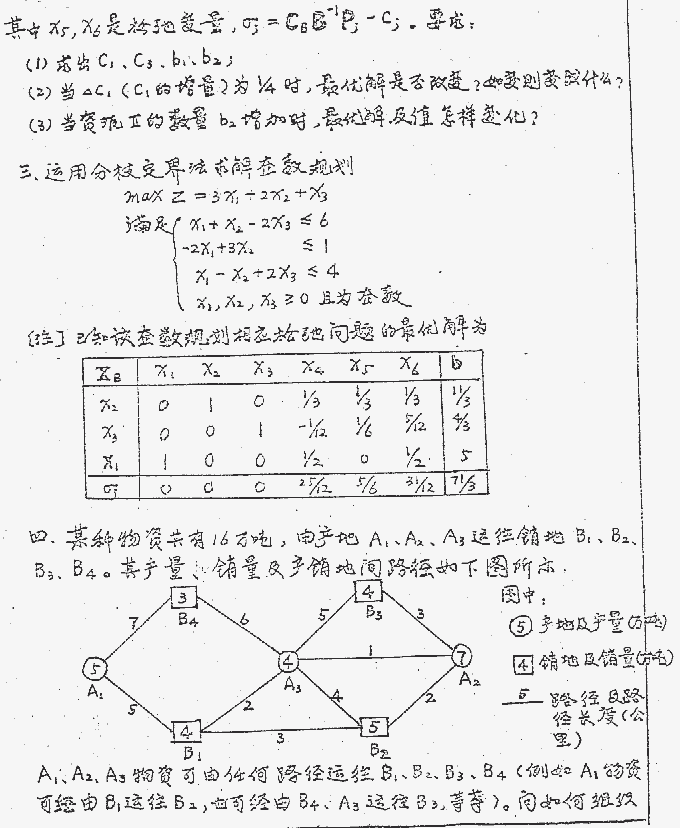 其中 X₅, X₆ 是松弛变量, σⱼ = C_B B⁻¹Pⱼ - Cⱼ 。要求:
(1) 求出 C₁、C₃、b₁、b₂;
(2) 当 ΔC₁ (C₁的增量) 为 1/4 时, 最优解是否改变? 如变则变成什么?
(3) 当资源 II 的数量 b₂ 增加时, 最优解及值怎样变化?
三、运用分枝定界法求解整数规划
max Z = 3X₁ + 2X₂ + X₃
满足 X₁ + X₂ - 2X₃ ≤ 6
-2X₁ + 3X₂ ≤ 1
X₁ - X₂ + 2X₃ ≤ 4
X₁, X₂, X₃ ≥ 0 且为整数
[注] 已知该整数规划相应松弛问题的最优解为
X_B X₁ X₂ X₃ X₄ X₅ X₆ b
X₂ 0 1 0 1/3 1/3 1/3 11/3
X₃ 0 0 1 -1/12 1/6 5/12 4/3
X₁ 1 0 0 1/2 0 1/2 5
σⱼ 0 0 0 25/12 5/6 31/12 71/3
四. 某种物资共有16万吨, 由产地 A₁、A₂、A₃ 运往销地 B₁、B₂、
B₃、B₄。其产量、销量及产销地间路径如下图所示.
图中:
3 B₄
4 B₃
7 6 5 3
⑤ 产地及产量(万吨)
5 A₁
4 A₃
1
7 A₂
4 销地及销量(万吨)
5 2 4 2
4 B₁
3
5 B₂
5 路径及路
径长度(公
里)
A₁、A₂、A₃ 物资可由任何路径运往 B₁、B₂、B₃、B₄ (例如 A₁ 物资
可经由 B₁ 运往 B₂, 也可经由 B₄、A₃ 运往 B₃, 等等)。问如何组织